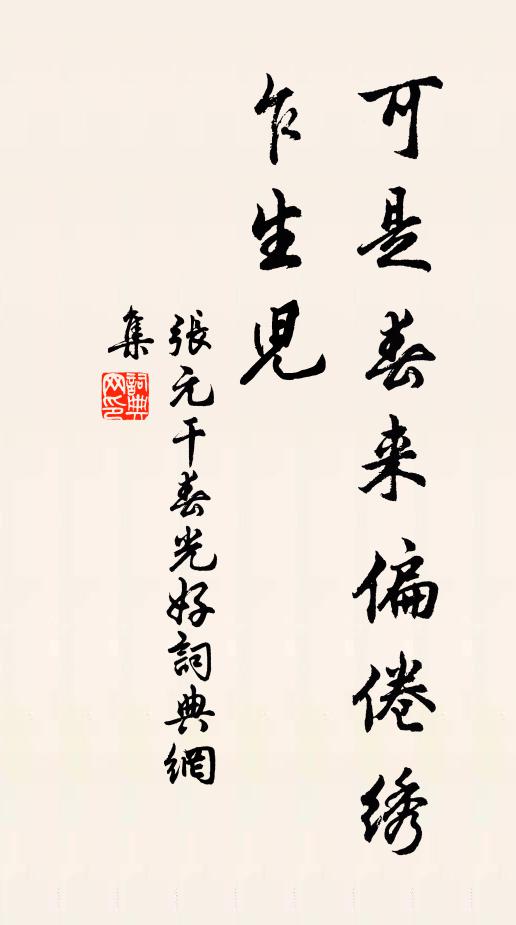 可是春来偏倦绣
乍生児
張元干春光好詞典網
集
詞典网印